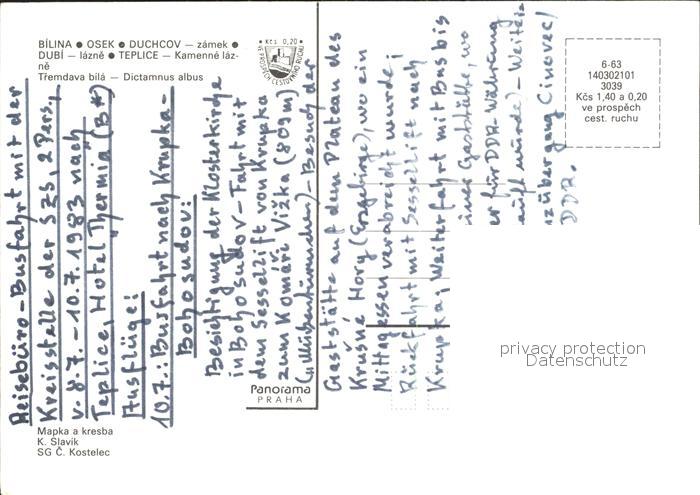 BÍLINA ● OSEK ● DUCHCOV — zámek ●
DUBÍ — lázně ● TEPLICE — Kamenné láz-
ně
Třemdava bílá — Dictamnus albus
● Kčs 0,20 ●
VE PROSPĚCH CESTOVNÍHO RUCHU
6-63
140302101
3039
Kčs 1,40 a 0,20
ve prospěch
cest. ruchu
Reisebüro-Busfahrt mit der
Kreisstelle der SZS, 2 Pers.,
v. 8.7. – 10.7.1983 nach
Teplice, Hotel "Thermia (B*)
Ausflüge:
10.7.: Busfahrt nach Krupka-
Bohosudov:
Besichtigung der Klosterkirche
in Bohosudov – Fahrt mit
dem Sessellift von Krupka
zum Komáří Vížka (809m)
("Mückentürmchen) – Besuch der
Gaststätte auf dem Plateau des
Krušné Hory (Erzgebirge), wo ein
Mittagessen verabreicht wurde;
Rückfahrt mit Sessellift nach
Krupka; Weiterfahrt mit Bus bis
einer Gaststätte, wo
er für DDR-Währung
wurde) – Weiter
zübergang Cinovec/
DDR.
Panorama
PRAHA
privacy protection
Datenschutz
Mapka a kresba
K. Slavík
SG Č. Kostelec